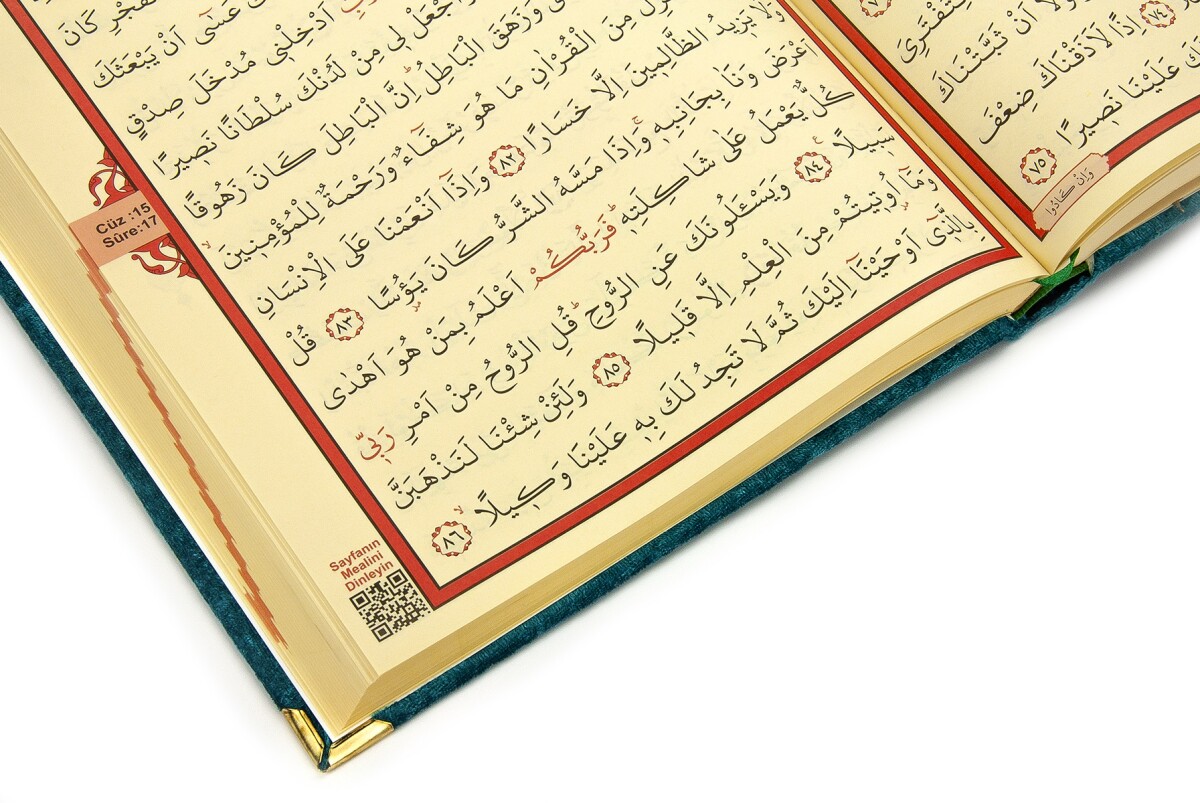 لِتَفْتَرِىَ
اَنْ ثَبَّتْنَاكَ
٧٤ اِذًا لَاَذَقْنَاكَ ضِعْفَ
عَلَيْنَا نَصٖيرًا ٧٥
وَاِنْ كَادُوا
كَانَ
عَسٰٓى اَنْ يَبْعَثَكَ
اَدْخِلْنٖى مُدْخَلَ صِدْقٍ
اجْعَلْ لٖى مِنْ لَدُنْكَ سُلْطَانًا نَصٖيرًا
وَزَهَقَ الْبَاطِلُ اِنَّ الْبَاطِلَ كَانَ زَهُوقًا
مِنَ الْقُرْاٰنِ مَا هُوَ شِفَٓاءٌ وَرَحْمَةٌ لِلْمُؤْمِنٖينَ
وَلَا يَزٖيدُ الظَّالِمٖينَ اِلَّا خَسَارًا ٨٢ وَاِذَٓا اَنْعَمْنَا عَلَى الْاِنْسَانِ
اَعْرَضَ وَنَاٰ بِجَانِبِهٖ وَاِذَا مَسَّهُ الشَّرُّ كَانَ يَؤُسًا ٨٣ قُلْ
كُلٌّ يَعْمَلُ عَلٰى شَاكِلَتِهٖ فَرَبُّكُمْ اَعْلَمُ بِمَنْ هُوَ اَهْدٰى
سَبٖيلًا ٨٤ وَيَسْـَٔلُونَكَ عَنِ الرُّوحِ قُلِ الرُّوحُ مِنْ اَمْرِ رَبّٖى
وَمَٓا اُوتٖيتُمْ مِنَ الْعِلْمِ اِلَّا قَلٖيلًا ٨٥ وَلَئِنْ شِئْنَا لَنَذْهَبَنَّ
بِالَّذٖٓى اَوْحَيْنَٓا اِلَيْكَ ثُمَّ لَا تَجِدُ لَكَ بِهٖ عَلَيْنَا وَكٖيلًا ٨٦
Cüz :15
Sûre:17
Sayfanın
Mealini
Dinleyin